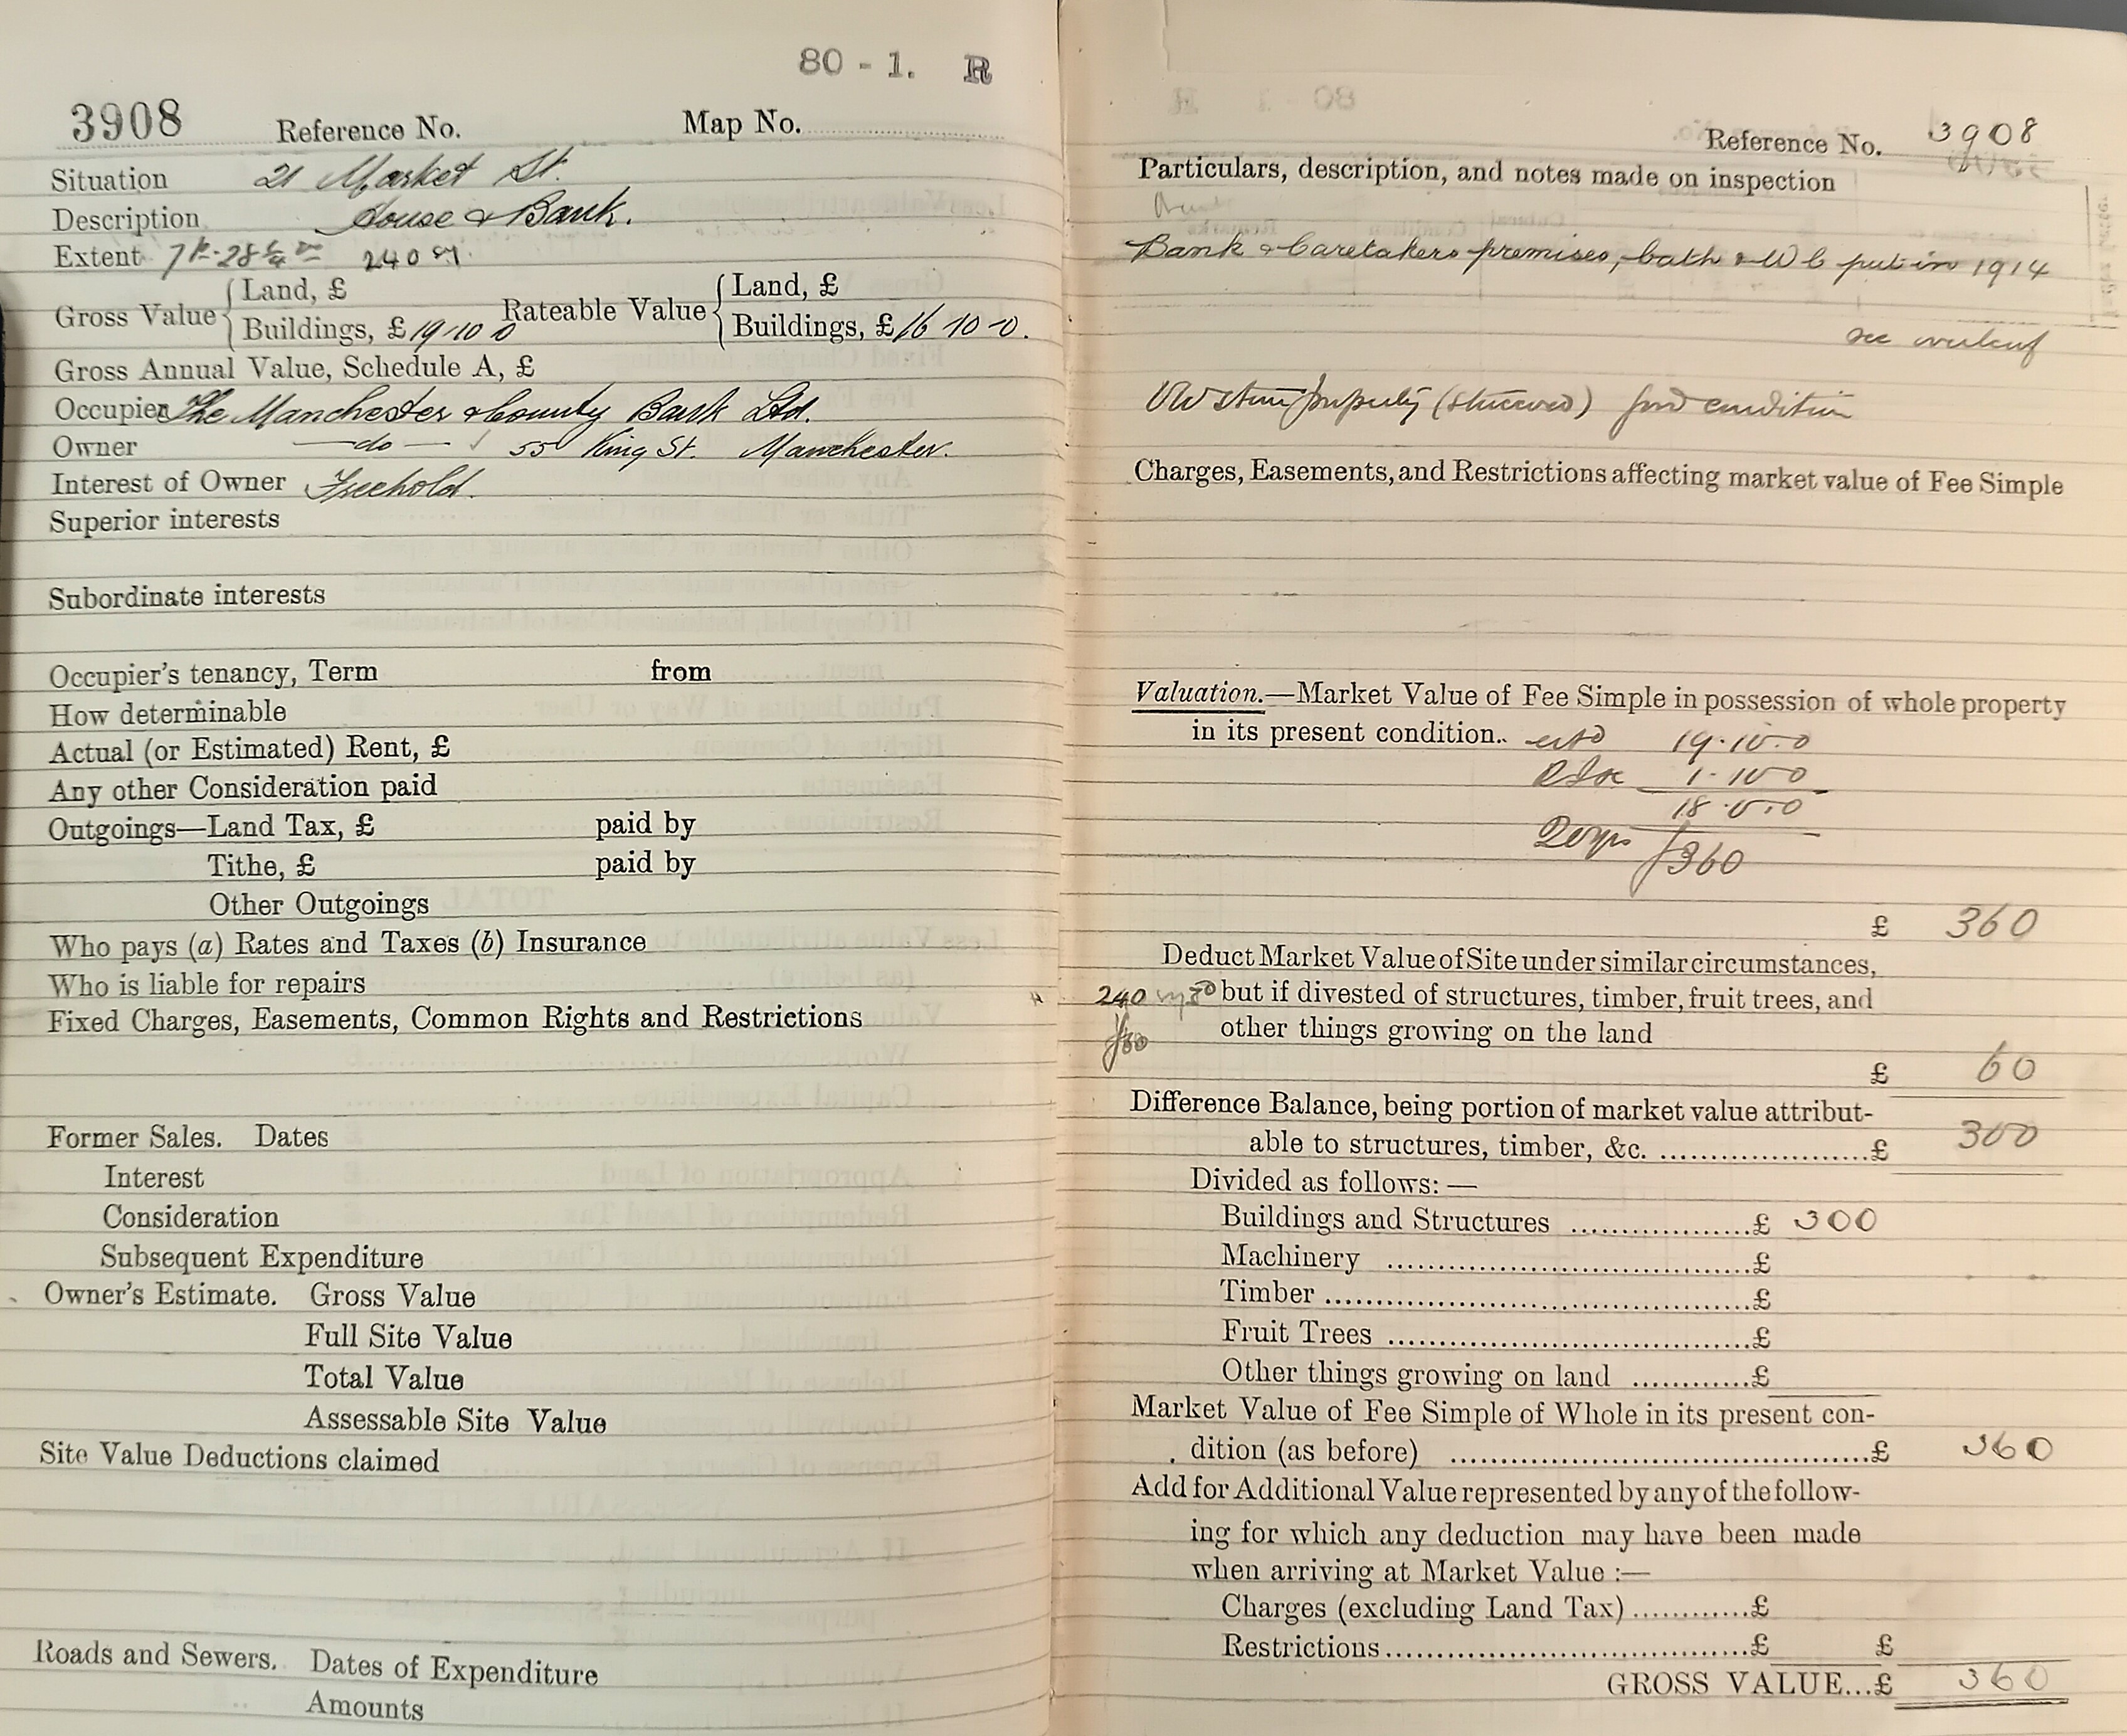 80 - 1. R
3908 Reference No. Map No.
Situation 21 Market St.
Description House & Bank.
Extent 240
Gross Value { Land, £ Rateable Value { Land, £
Buildings, £ 19-10 0 Buildings, £ 16 10-0.
Gross Annual Value, Schedule A, £
Occupier The Manchester & County Bank Ltd.
Owner — do — ✓ 55 King St. Manchester.
Interest of Owner Freehold.
Superior interests
Subordinate interests
Occupier's tenancy, Term from
How determinable
Actual (or Estimated) Rent, £
Any other Consideration paid
Outgoings—Land Tax, £ paid by
Tithe, £ paid by
Other Outgoings
Who pays (a) Rates and Taxes (b) Insurance
Who is liable for repairs
Fixed Charges, Easements, Common Rights and Restrictions
Former Sales. Dates
Interest
Consideration
Subsequent Expenditure
Owner's Estimate. Gross Value
Full Site Value
Total Value
Assessable Site Value
Site Value Deductions claimed
Roads and Sewers. Dates of Expenditure
Amounts
Reference No. 3908
Particulars, description, and notes made on inspection
Bank & Caretakers premises, bath & W C put in 1914
see overleaf
Old stone property (stuccoed) good condition
Charges, Easements, and Restrictions affecting market value of Fee Simple
Valuation.—Market Value of Fee Simple in possession of whole property
in its present condition. 19.10.0
1.10 0
18.0.0
20 yrs £360
£ 360
Deduct Market Value of Site under similar circumstances,
240 but if divested of structures, timber, fruit trees, and
£60 other things growing on the land
£ 60
Difference Balance, being portion of market value attribut-
able to structures, timber, &c. ....................£ 300
Divided as follows: —
Buildings and Structures ..................£ 300
Machinery .....................................£
Timber ...........................................£
Fruit Trees .....................................£
Other things growing on land ............£
Market Value of Fee Simple of Whole in its present con-
dition (as before) .............................................£ 360
Add for Additional Value represented by any of the follow-
ing for which any deduction may have been made
when arriving at Market Value :—
Charges (excluding Land Tax) ............£
Restrictions ......................................£ £
GROSS VALUE...£ 360